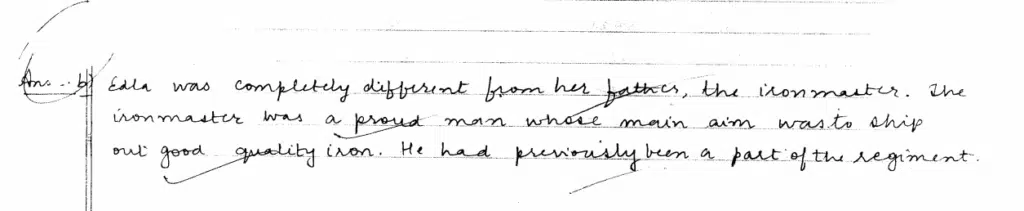 Ans. b) Edla was completely different from her father, the ironmaster. The
ironmaster was a proud man whose main aim was to ship
out good quality iron. He had previously been a part of the regiment.